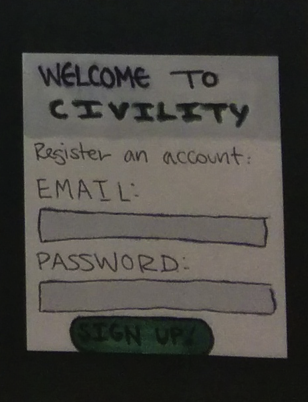 WELCOME TO
CIVILITY
Register an account:
EMAIL:
PASSWORD:
SIGN UP!